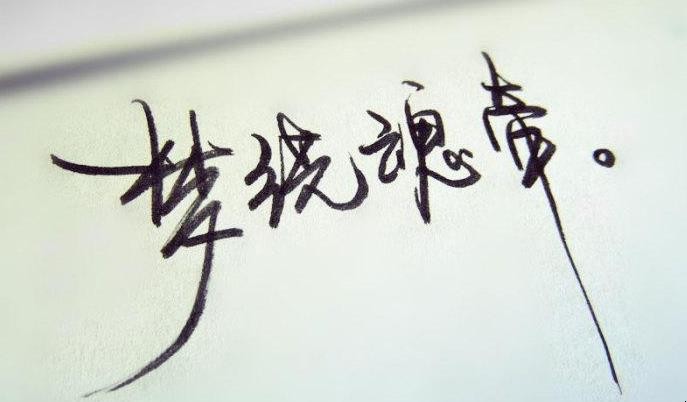 梦绕魂牵。